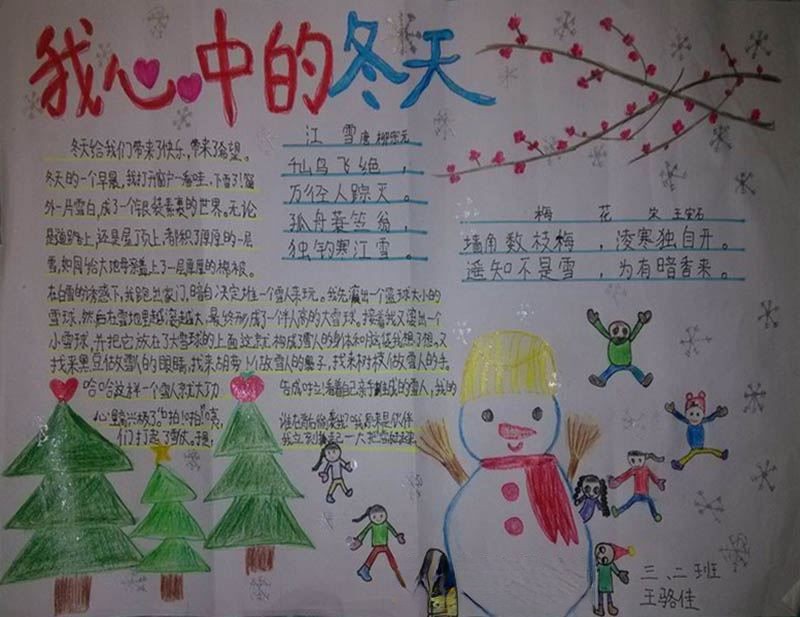 我心中的冬天
冬天给我们带来了快乐，带来了希望。
冬天的一个早晨，我打开窗户一看哇，下雪了！窗
外一片雪白，成了一个银装素裹的世界。无论
是道路上，还是屋顶上，都积了厚厚的一层
雪，如同给大地母亲盖上了一层厚厚的棉被。
在白雪的诱惑下，我跑出家门，暗自决定堆一个雪人来玩。我先滚出一个篮球大小的
雪球，然后在雪地里越滚越大，最终形成了一个半人高的大雪球。接着我又滚出一个
小雪球，并把它放在了大雪球的上面这就构成了雪人的身体和
找来黑豆做雪人的眼睛，找来胡萝卜做雪人的鼻子，找来树枝做雪人的手
哈哈这样一个雪人就大功
告成啦！看着自己亲手堆成的雪人，我的
心里高兴极了。"啪！啪！"咦，
谁在背后偷袭我？哦原来是伙伴
们打起了雪仗。
我立刻
江 雪 唐 柳宗元
千山鸟飞绝，
万径人踪灭。
孤舟蓑笠翁，
独钓寒江雪。
梅 花 宋 王安石
墙角数枝梅，凌寒独自开。
遥知不是雪，为有暗香来。
三、二班
王骆佳